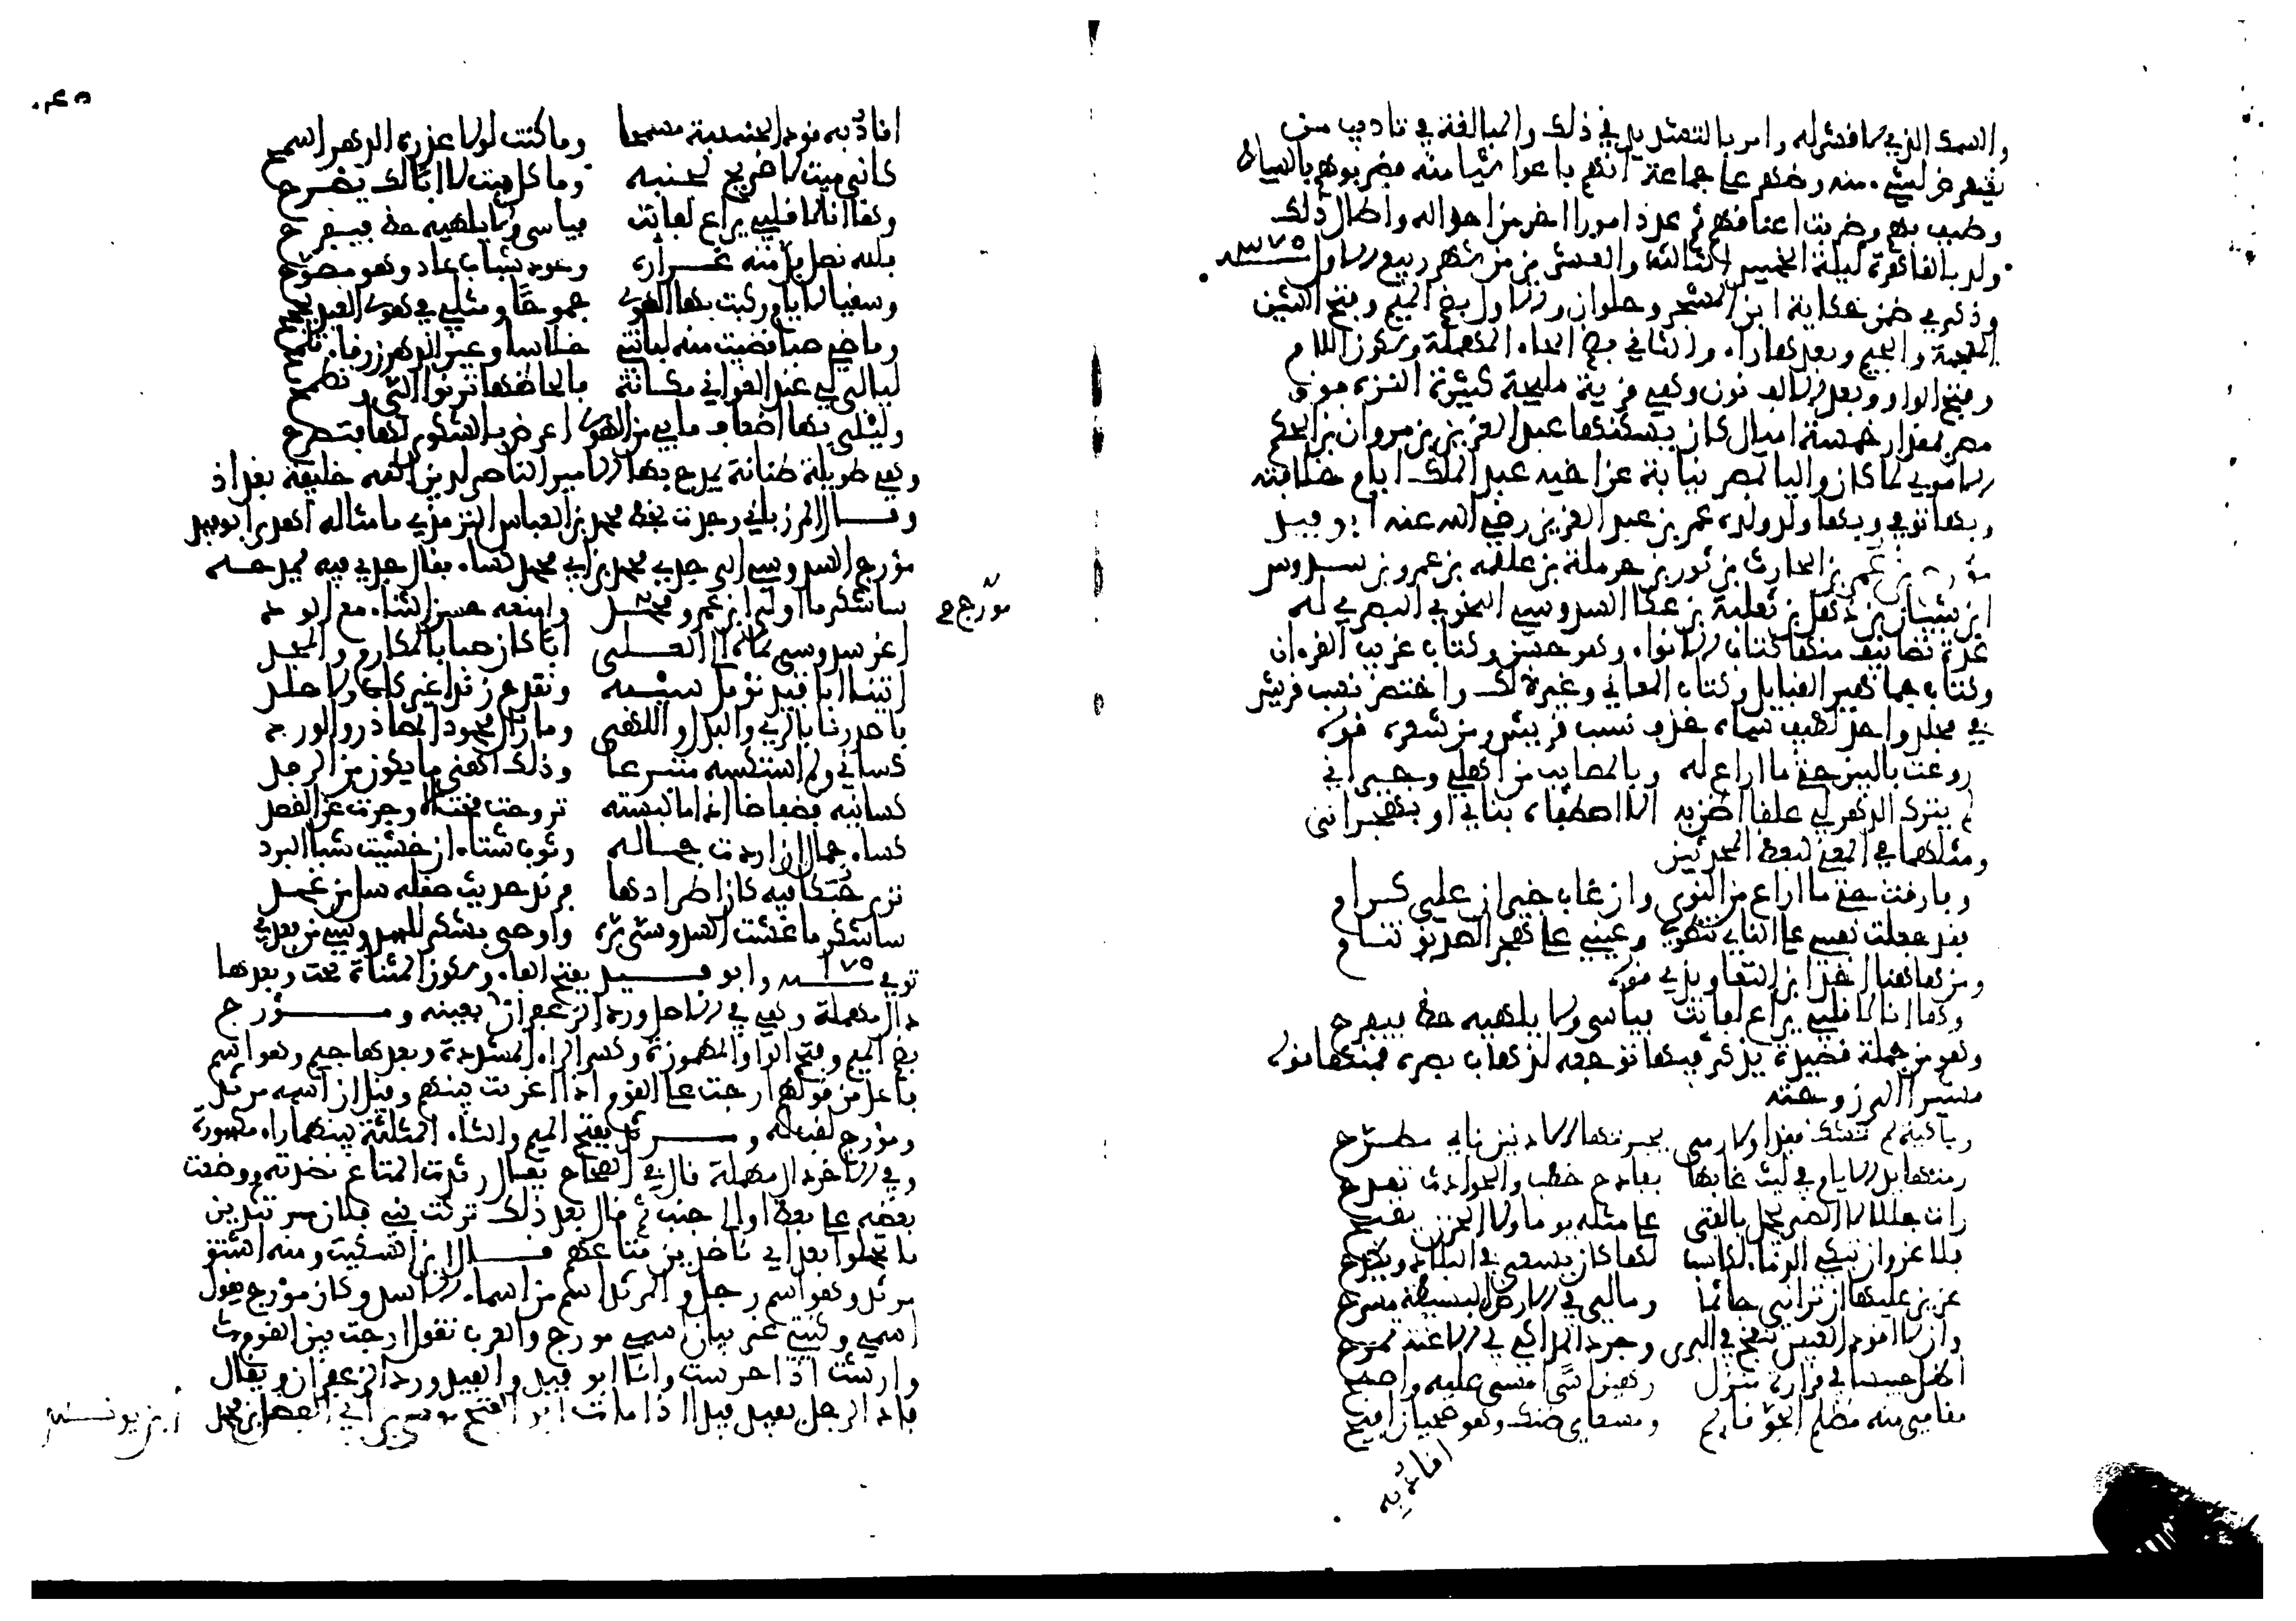 والسمك الذي لا قشر له وامر بالتشديد في ذلك والمبالغة في تاديب من
يتعرض لشيء منه وظهر على جماعة انهم باعوا شيا منه فضربوهم بالسياط
وطيف بهم وضربت اعناقهم ثم عدد امورا اخر من احواله واطال ذلك
ولد بالقاهرة ليلة الخميس الثالثة والعشرين من شهر ربيع الاول سنة ٣٧٥
وذكر في ضمن حكاية ابن المشجر وحلوان والاول بضم الميم وفتح الشين
المعجمة والجيم وبعدها راء والثاني بضم الحاء المهملة وسكون اللام
وفتح الواو وبعد الالف نون وهي قرية مليحة كثيرة النزه فوق
مصر بمقدار خمسة اميال كان يسكنها عبد العزيز بن مروان بن الحكم
الاموي لما كان واليا بمصر نيابة عن اخيه عبد الملك ايام خلافته
وبها توفي وبها ولد ولده عمر بن عبد العزيز رضي الله عنه ابو فيد
بن عمر بن الحارث بن ثور بن حرملة بن علقمه بن عمرو بن سدوس
ابن شيبان بن ذهل بن ثعلبة بن عكا السدوسي النحوي البصري له
عدة تصانيف منها كتاب الانواء وهو حسن وكتاب غريب القرءان
وكتاب جماهير القبايل وكتاب المعاني وغير ذلك واختصر نسب قريش
في مجلد واحد لطيف سماه حذف نسب قريش ومن شعره قوله
روعت بالبين حتى ما اراع له وبالمصايب من اهلي وجيراني
لم يترك الدهر لي علقا اضن به الا اصطفاه بناي او بهجراني
ومثلهما في المعنى لبعض المحدثين
وفارقت حتى ما اراع من النوى وان غاب خيران علي كرام
فقد جعلت نفسي على الناي تنطوي وعيني على هجر الصديق تنام
ومن هاهنا اخذ ابن التعاويذي قوله
وها انا لا قلبي يراع لفائت فياسى ولا يلهيه حظ فيفرح
وهو من جملة قصيدة يذكر فيها توجعه لذهاب بصره فمنها قوله
مشيرا الى زوجته
وباكية لم تشك فقدا ولا رمى بجيرتها الادنين ناي مطرح
رمتها يد الايام في ليث غابها بفادح خطب والحوادث تفدح
رات جللا لا الصبر يجمل بالفتى على مثله يوما ولا الحزن يقبح
فلا غرو ان تبكي الدماء لكاسب لها كان يسعى في البلاد ويكدح
عزيز عليها ان تراني جاثما ومالي في الارض البسيطة مسرح
وان لا اقود العيس تنفخ في البرى وجرد المذاكي في الاعنة تمرح
اظل حبيسا في قرارة منزل رهين اسى امسي عليه واصبح
مقامي منه مظلم الجو قاتم ومسعاي ضنك وهو ضحيان افيح
افاد به
افاد به قود الجنيبة مسمحا وما كنت لولا غدرة الدهر اسمح
كاني ميت لا ضريح لجنبه وما كل ميت لا ابا لك يضرح
وها انا لا قلبي يراع لفائت فياسى ولا يلهيه حظ فيفرح
فلله نصل فل منه غراره وعود شباب عاد وهو مصوح
وسقيا لايام ركبت بها الهوى جموحا ومثلي في هوى الغيد يجمح
وماضي صبا قضيت منه لبانتي خلاسا وعين الدهر زرقاء تلمح
ليالي لي عند الغواني مكانة فالحاظها ترنوا الي وتطمح
وليلي بها اضعاف ما بي من الهوى اعرض بالشكوى لها فتصرح
وهي طويلة طنانة يمدح بها الامير الناصر لدين الله خليفة بغداذ
وقال المرزباني وجدت بخط محمد بن العباس اليزمذي ما مثاله اهدى ابو فيد
مؤرج السدوسي الى جدي محمد بن ابي محمد كساء فقال جدي فيه يمدحه
مورج ح
ساشكر ما اولى ابن عمرو محمد وامنحه حسن الثناء مع الود
اغر سدوسي نماه الى العلى اب كان صبا بالمكارم والمجد
اتينا ابا فيد نؤمل سيبه ونقدح زندا غير كاب ولا صلد
فاصدرنا بالري والبذل واللهى وما زال محمود المصادر والورد
كساني ولم استكسه متبرعا وذلك اهنى ما يكون من الرفد
كسانيه فضفاضا اذا ما لبسته تروحت مختالا وجرت عن القصد
كساء جمال ان اردت جماله وثوب شتاء ان خشيت شبا البرد
ترى حبكا فيه كان اطرادها فرند حديث صقله سل من غمد
ساشكر ما عشت السدوسي بره واوصي بشكر للسدوسي من بعدي
توفي سنة ١٧٥ وابو فيد بفتح الفاء وسكون المثناة تحت وبعدها
دال مهملة وهي في الاصل ورد الزعفران بعينه ومؤرج
بضم الميم وفتح الواو المهموزة وكسر الراء المشددة وبعدها جيم وهو اسم
فاعل من قولهم ارجت على القوم اذا اغريت بينهم وقيل ان اسمه مرثد
ومؤرج لقب له ومرثد بفتح الميم والثاء المثلثة بينهما راء مكسورة
وفي الاخر دال مهملة قال في الصحاح يقال رثدت المتاع نضدته ووضعت
بعضه على بعض او الى جنب ثم قال بعد ذلك تركت بني فلان مرتثدين
ما تحملوا بعد اي ناضدين متاعهم قال ابن السكيت ومنه اشتق
مرثد وهو اسم رجل والمرثد اسم من اسماء الاسد وكان مؤرج يقول
اسمي وكنيتي غريبان اسمي مورج والعرب تقول ارجت بين القوم
وارشت اذا حرشت وانا ابو فيد والفيد ورد الزعفران ويقال
فاد الرجل يفيد فيدا اذا مات ابو الفتح موسى بن ابي الفضل بن محمد
ابن يونس